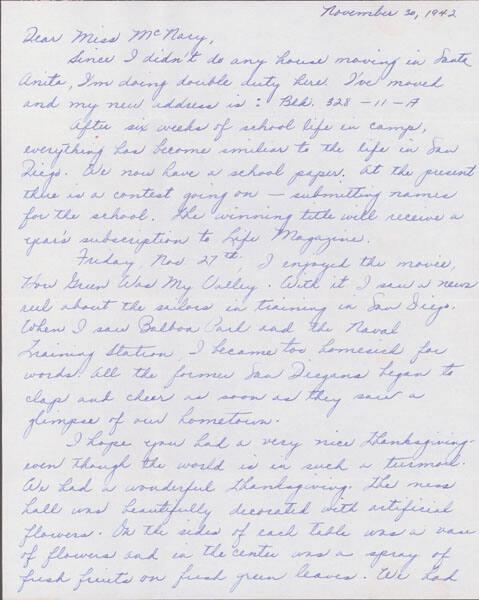 November 30, 1942
Dear Miss McNary,
Since I didn't do any house moving in Santa
Anita, I'm doing double duty here. I've moved
and my new address is: Blk. 328-11-A
After six weeks of school life in camp,
everything has become similiar to the life in San
Diego. We now have a school paper. At the present
there is a contest going on — submitting names
for the school. The winning title will receive a
year's subscription to Life Magazine.
Friday, Nov. 27th. I enjoyed the movie,
How Green Was My Valley. With it I saw a news
reel about the sailors in training in San Diego.
When I saw Balboa Park and the Naval
Training Station, I became too homesick for
words. All the former San Diegans began to
clap and cheer as soon as they saw a
glimpse of our hometown.
I hope you had a very nice Thanksgiving-
even though the world is in such a turmoil.
We had a wonderful Thanksgiving. The mess
hall was beautifully decorated with artificial
flowers. On the sides of each table was a vase
of flowers and in the center was a spray of
fresh fruits on fresh green leaves. We had